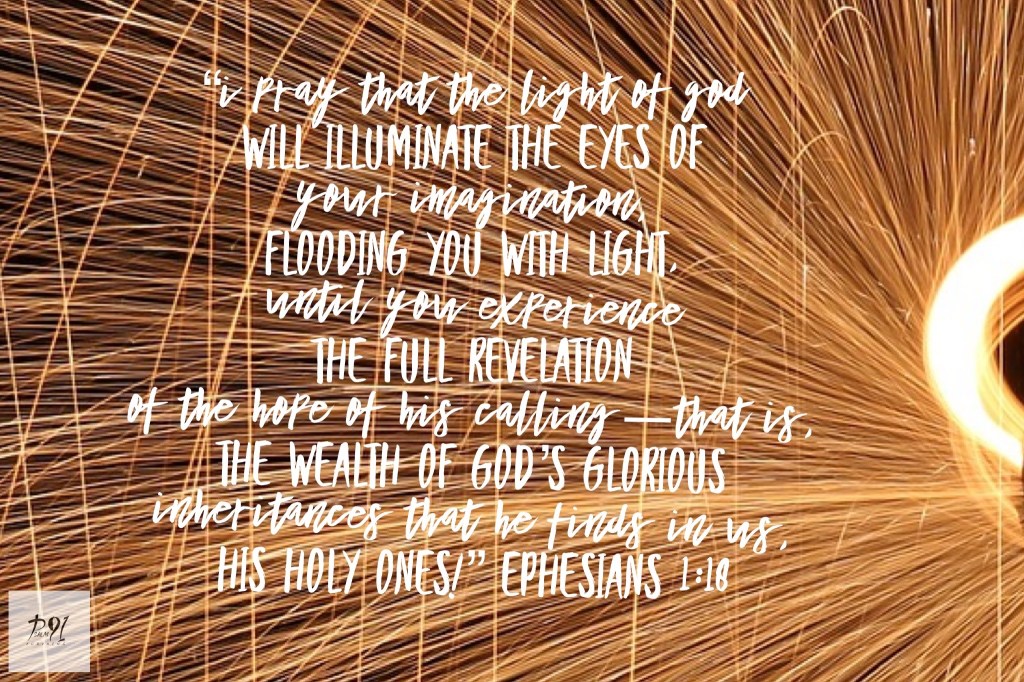 “i pray that the light of god
WILL ILLUMINATE THE EYES OF
your imagination,
FLOODING YOU WITH LIGHT,
until you experience
THE FULL REVELATION
of the hope of his calling—that is,
THE WEALTH OF GOD’S GLORIOUS
inheritances that he finds in us,
HIS HOLY ONES!” EPHESIANS 1:18